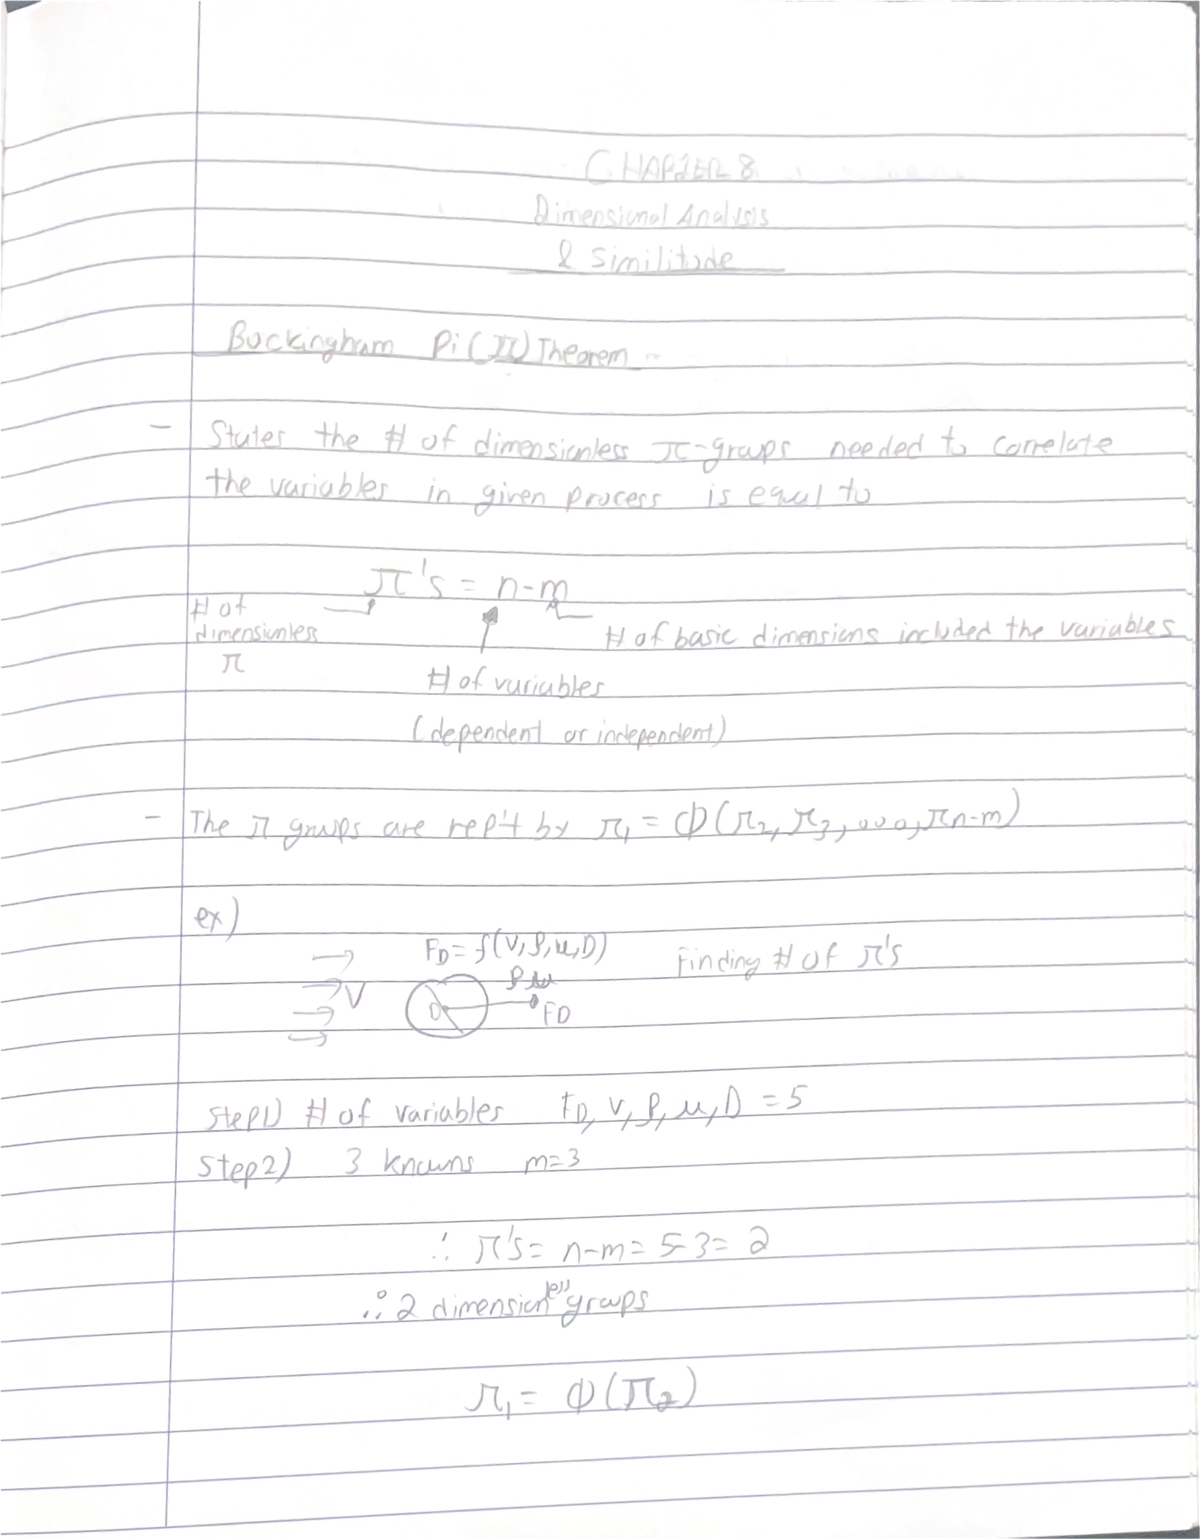 CHAPTER 8
Dimensional Analysis
& Similitude
Buckingham Pi (π) Theorem
- States the # of dimensionless π-groups needed to correlate
the variables in given process is equal to
π's = n-m
# of
dimensionless
π
# of basic dimensions included the variables
# of variables
(dependent or independent)
- The π groups are rep't by π₁ = Φ(π₂, π₃, ..., πn-m)
ex)
F_D = f(V, ρ, μ, D) Finding # of π's
ρ μ
V D F_D
Step1) # of variables F_D, V, ρ, μ, D = 5
Step2) 3 knowns m=3
∴ π's = n-m = 5-3 = 2
∴ 2 dimensionless groups
π₁ = Φ(π₂)